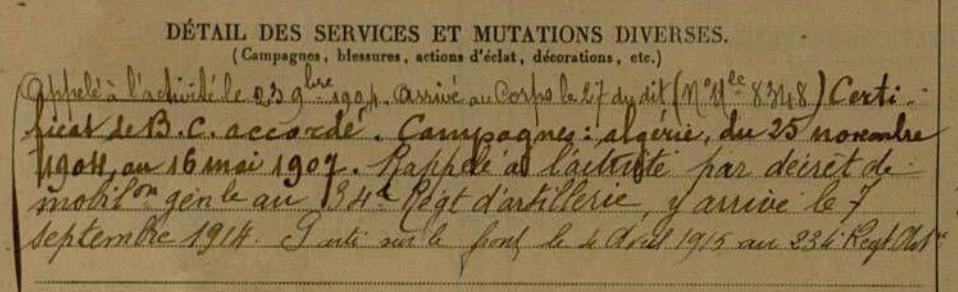 DÉTAIL DES SERVICES ET MUTATIONS DIVERSES.
(Campagnes, blessures, actions d'éclat, décorations, etc.)
Appelé à l'activité le 23 9bre 1904. Arrivé au Corps le 27 du dit (N° Mle 8348) Certi-
ficat de B.C. accordé. Campagnes: algérie, du 25 novembre
1904, au 16 mai 1907. Rappelé à l'activité par décret de
mobilon génle au 34e Régt d'artillerie, y arrive le 7
septembre 1914. Parti sur le front le 4 Avril 1915 au 234e Regt Artie